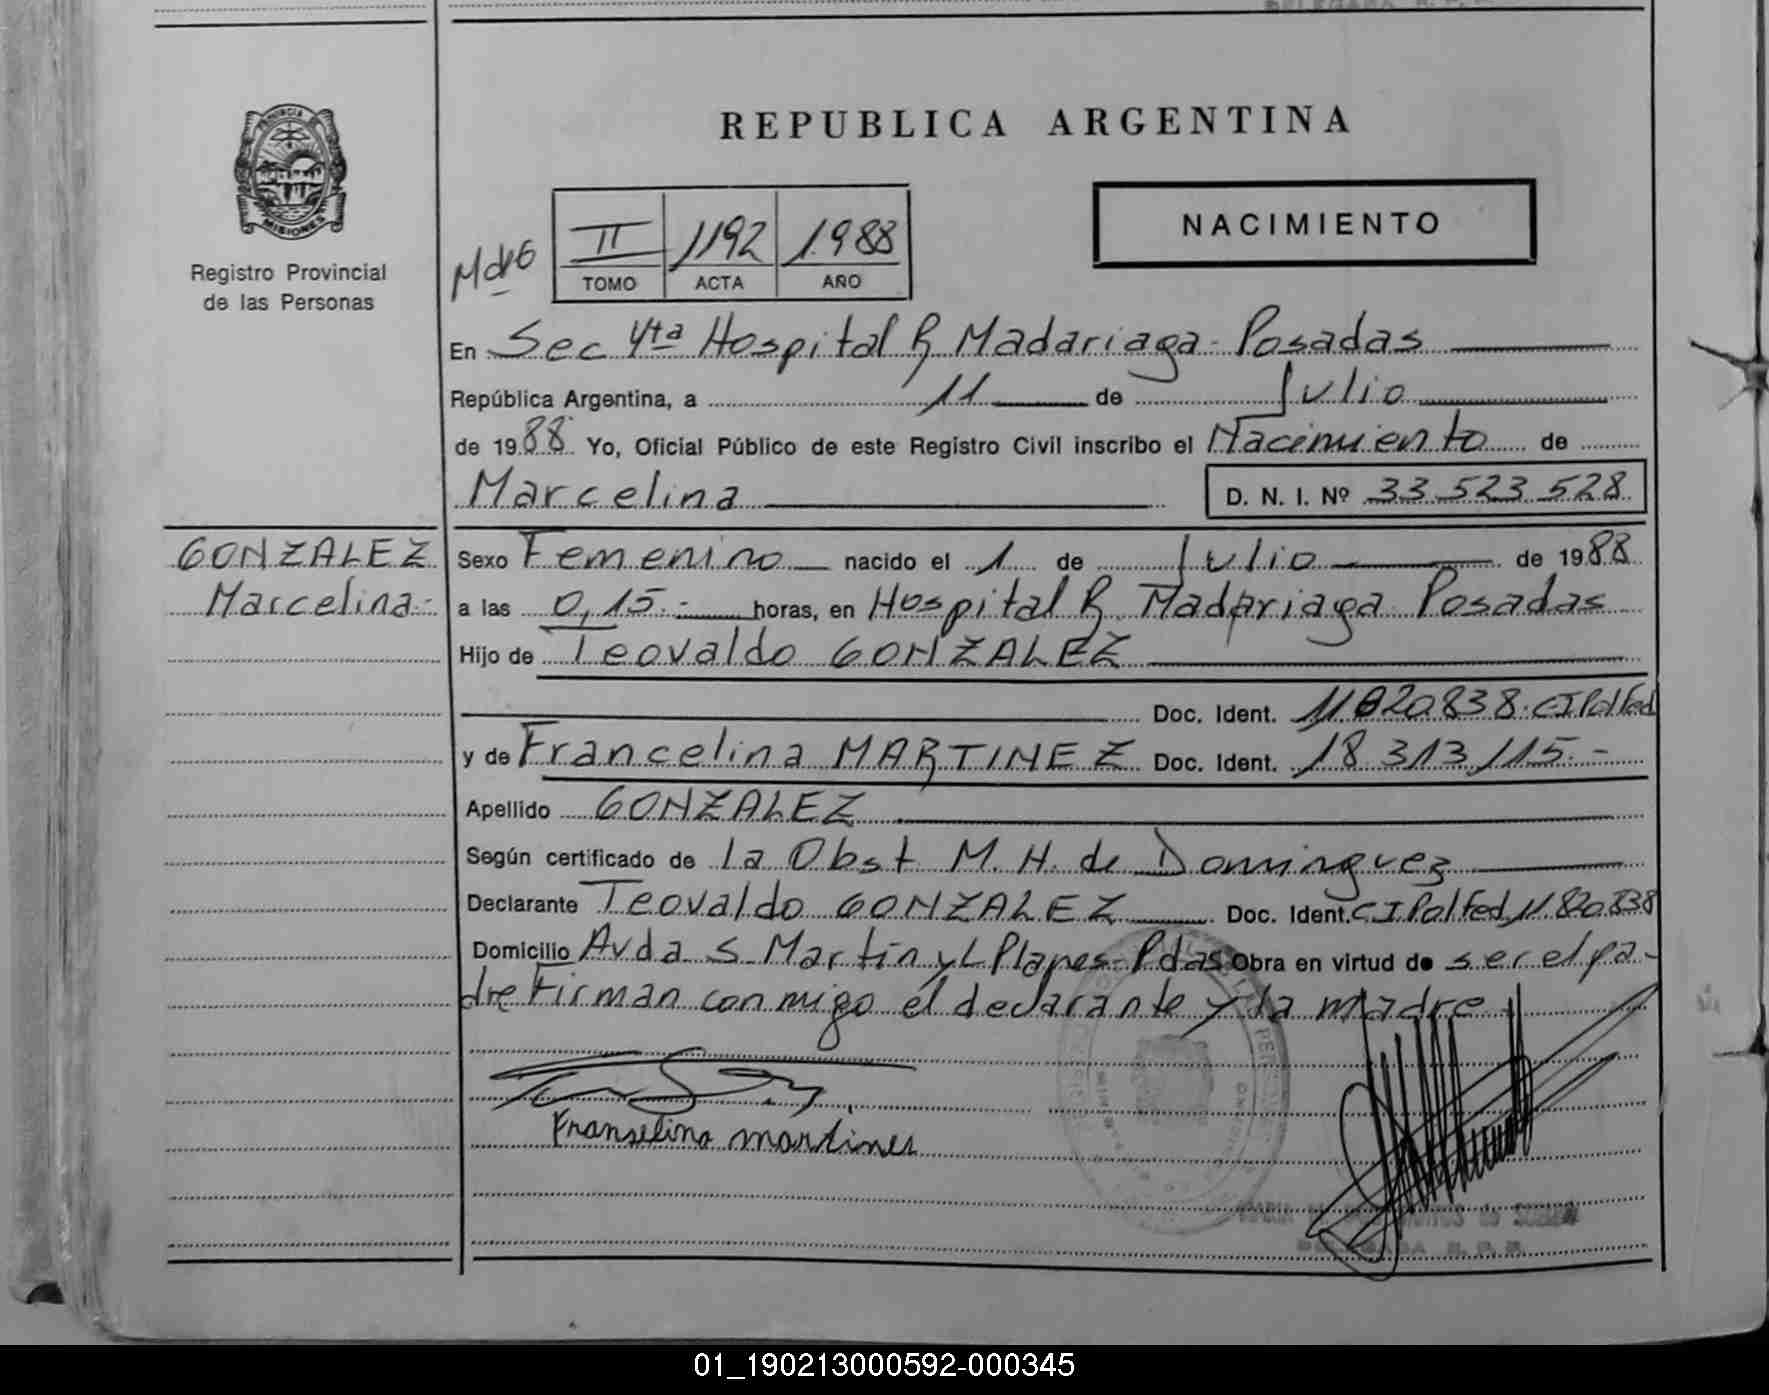 REPUBLICA ARGENTINA
PROVINCIA DE
MISIONES
Registro Provincial
de las Personas
NACIMIENTO
II 1192 1.988
TOMO ACTA AÑO
En Sec 4ta Hospital R Madariaga - Posadas
República Argentina, a 11 de Julio
de 1988 Yo, Oficial Público de este Registro Civil inscribo el Nacimiento de
Marcelina D. N. I. Nº 33 523 528
GONZALEZ
Marcelina.-
Sexo Femenino nacido el 1 de Julio de 1988
a las 0,15.- horas, en Hospital R. Madariaga Posadas
Hijo de Teovaldo GONZALEZ
Doc. Ident. 11820838. CI Pol Fed
y de Francelina MARTINEZ Doc. Ident. 18 313 115.-
Apellido GONZALEZ
Según certificado de la Obst M. H. de Dominguez
Declarante Teovaldo GONZALEZ Doc. Ident. CI Pol Fed 11820838
Domicilio Avda S Martin y L Planes - Pdas Obra en virtud de ser el pa-
dre Firman conmigo el declarante y la madre
Franselina martines
DELEGADA R. P. P.
01_190213000592-000345